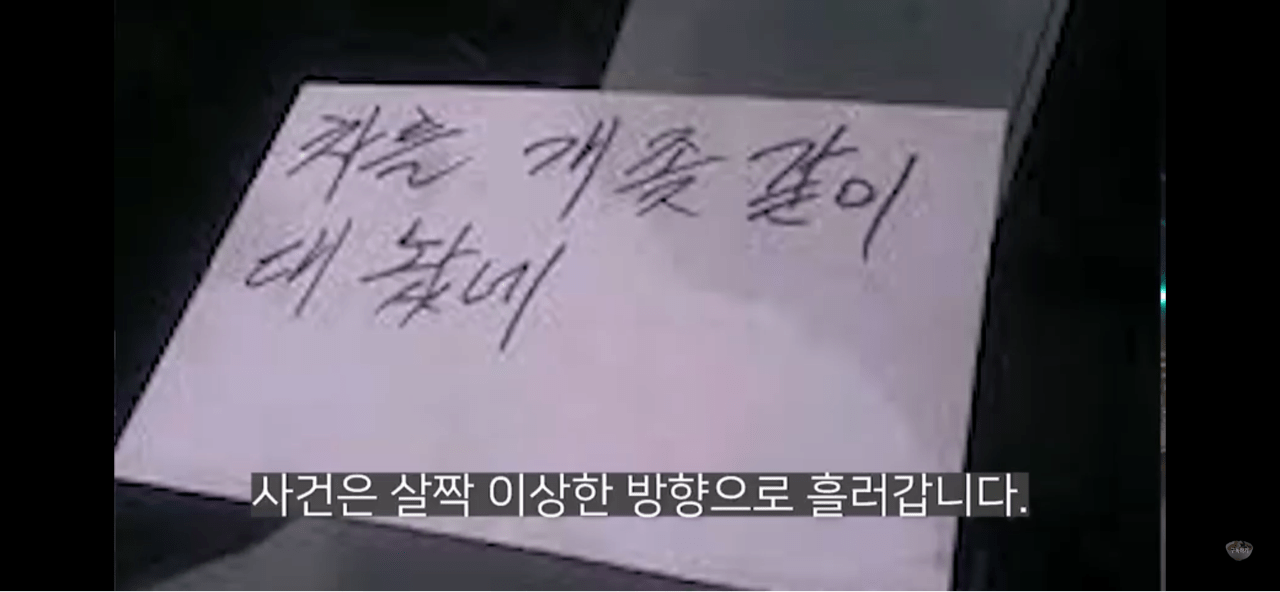 차를 개좆같이
대 놨네
사건은 살짝 이상한 방향으로 흘러갑니다.